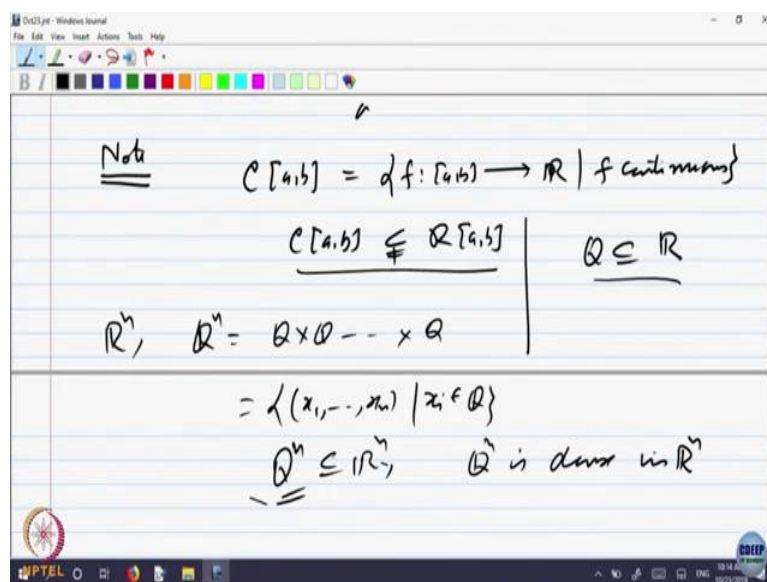 Oct23.jnt - Windows Journal
File Edit View Insert Actions Tools Help
B I
Note C[a,b] = {f: [a,b] → ℝ | f continuous}
C[a,b] ⊊ R[a,b] Q ⊆ ℝ
ℝⁿ, Qⁿ = Q×Q--- × Q
= {(x₁,--,xₙ) | xᵢ ∈ Q}
Qⁿ ⊆ ℝⁿ, Qⁿ is dense in ℝⁿ
NPTEL
CDEEP
ENG
10/23/2019